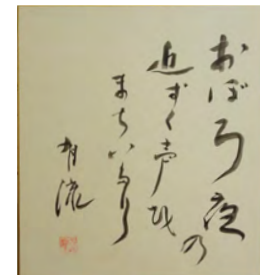 おぼろ夜の
近ずく声を
まちいたり
有流